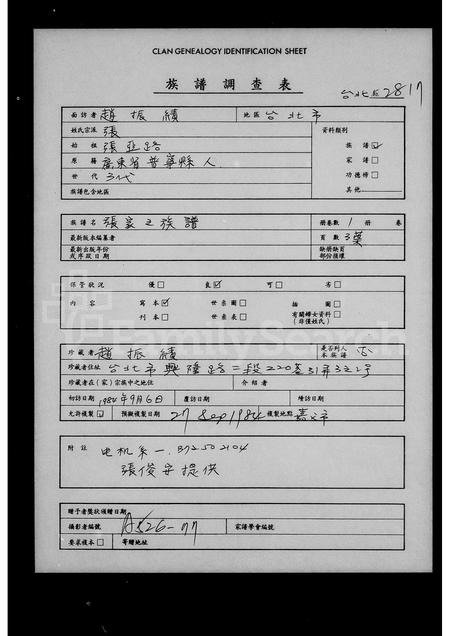 CLAN GENEALOGY IDENTIFICATION SHEET
族譜調查表
台北 2817
面訪者 趙振績 地區 台北市
姓氏宗派 張 資料類別
始祖 張亞路 族譜☑
原籍 廣東省普寧縣人 家譜☐
世代 3代 功德榜☐
族譜包含地區 其他
族譜名 張家之族譜 冊卷數 1 冊 卷
最新版本編纂者 頁數 3葉
最新出版年份或序跋日期 缺冊缺頁部份損壞
保管狀況 優☐ 良☑ 可☐ 劣☐
內容 寫本☑ 世系圖☐ 插圖☐
刊本☐ 世系表☐ 有關婦女資料☐ (非僅姓氏)
珍藏者 趙振績 是否列入本族譜 否
珍藏者住址 台北市興隆路二段220巷31弄3之2號
珍藏者在(家)宗族中之地位 介紹者
初訪日期 1984年9月6日 覆訪日期 續訪日期
允許複製☑ 預擬複製日期 27 Sep 1984 複製地點 嘉義市
附註 電机系一. 872502104
張俊安提供
贈予者獎狀頒贈日期
攝影者編號 A526-77 家譜學會編號
要求複本☐ 寄贈地址
FamilySearch